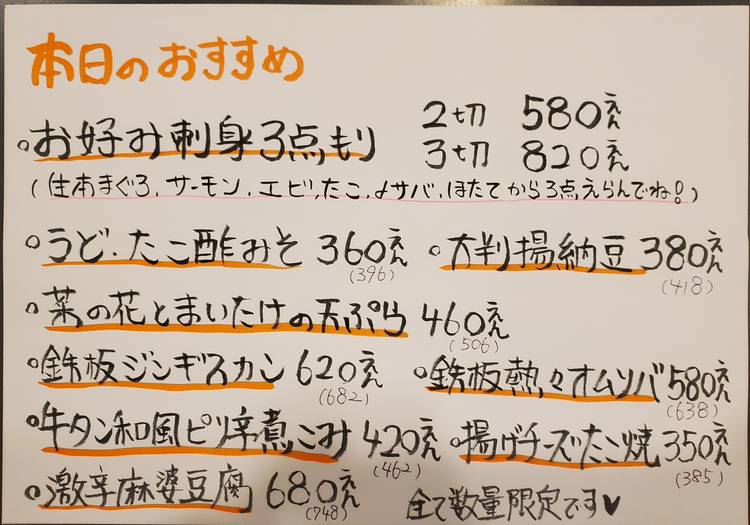 本日のおすすめ
○お好み刺身3点もり 2切 580えん
3切 820えん
(生本まぐろ、サーモン、エビ、たこ、〆サバ、ほたてから3点えらんでね!)
○うど・たこ酢みそ 360えん (396) ○大判揚納豆 380えん (418)
○菜の花とまいたけの天ぷら 460えん (506)
○鉄板ジンギスカン 620えん (682) ○鉄板熱々オムソバ 580えん (638)
○牛タン和風ピリ辛煮こみ 420えん (462) ○揚げチーズたこ焼 350えん (385)
○激辛麻婆豆腐 680えん (748) 全て数量限定です♥